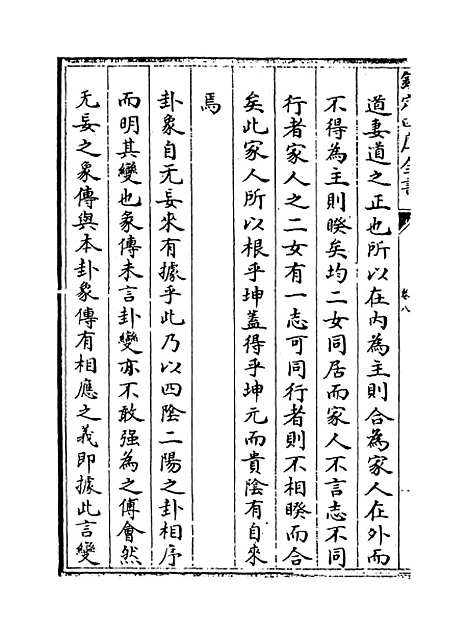 欽定四庫全書
卷八
道妻道之正也所以在内為主則合為家人在外而
不得為主則睽矣均二女同居而家人不言志不同
行者家人之二女有一志可同行者則不相睽而合
矣此家人所以根乎坤蓋得乎坤元而貴陰有自來
焉
卦象自无妄來有據乎此乃以四陰二陽之卦相序
而明其變也彖傳未言卦變亦不敢强為之傅會然
无妄之彖傳與本卦彖傳有相應之義即據此言變